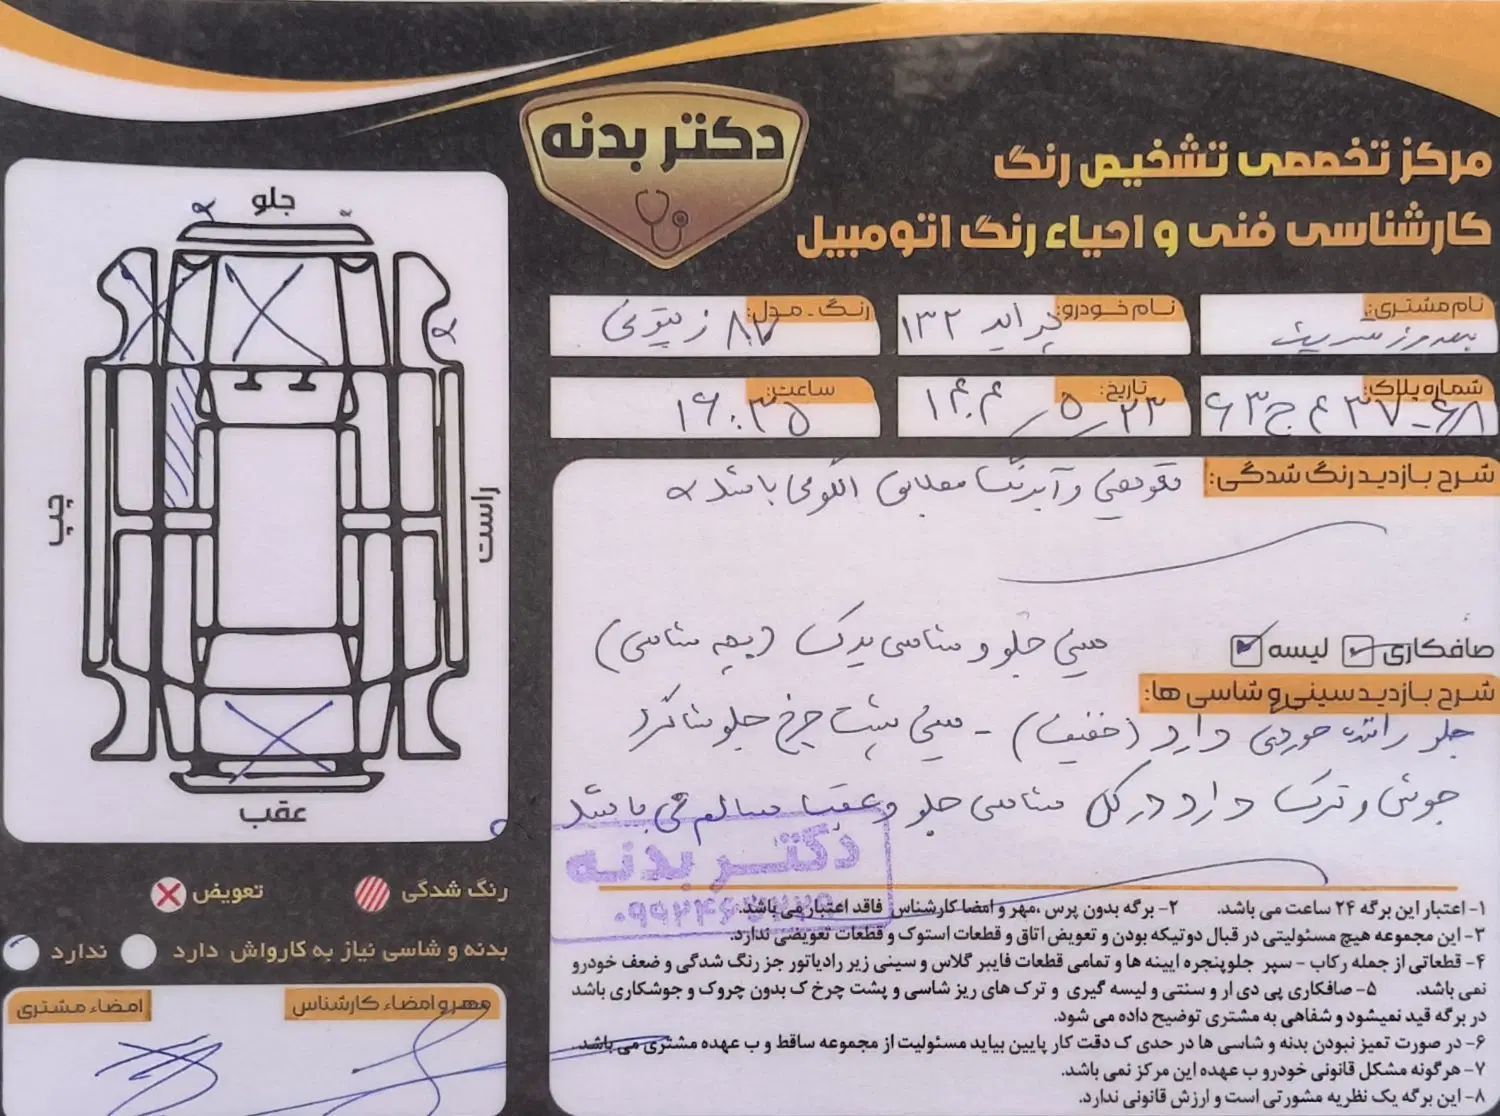 دکتر بدنه
مرکز تخصصی تشخیص رنگ
کارشناسی فنی و احیاء رنگ اتومبیل
نام مشتری:
نام خودرو: پراید ۱۳۲
رنگ - مدل: ۸۷ زیتونی
شماره پلاک: ۶۸ - ۳۷ ۴ ج ۶۳
تاریخ: ۱۴۰۴/۵/۲۳
ساعت: ۱۶:۳۵
جلو
چپ
راست
عقب
شرح بازدید رنگ شدگی: تعویضی و آبرنگ مطابق الگو می باشد
صافکاری لیسه
سینی جلو و شاسی یدک (پچه شاسی)
شرح بازدید سینی و شاسی ها:
جلو راننده خوردگی دارد (خفیف) - سینی پشت چرخ جلو شاگرد
جوش و ترک دارد در کل شاسی جلو و عقب سالم می باشد
دکتر بدنه
رنگ شدگی تعویض
بدنه و شاسی نیاز به کارواش دارد ندارد
مهر و امضاء کارشناس
امضاء مشتری
۱- اعتبار این برگه ۲۴ ساعت می باشد. ۲- برگه بدون پرس ،مهر و امضا کارشناس فاقد اعتبار می باشد.
۳- این مجموعه هیچ مسئولیتی در قبال دوتیکه بودن و تعویض اتاق و قطعات استوک و قطعات تعویضی ندارد.
۴- قطعاتی از جمله رکاب - سپر جلوپنجره ایینه ها و تمامی قطعات فایبر گلاس و سینی زیر رادیاتور جز رنگ شدگی و ضعف خودرو
نمی باشد. ۵- صافکاری پی دی ار و سنتی و لیسه گیری و ترک های ریز شاسی و پشت چرخ ک بدون چروک و جوشکاری باشد
در برگه قید نمیشود و شفاهی به مشتری توضیح داده می شود.
۶- در صورت تمیز نبودن بدنه و شاسی ها در حدی ک دقت کار پایین بیاید مسئولیت از مجموعه ساقط و ب عهده مشتری می باشد.
۷- هرگونه مشکل قانونی خودرو ب عهده این مرکز نمی باشد.
۸- این برگه یک نظریه مشورتی است و ارزش قانونی ندارد.